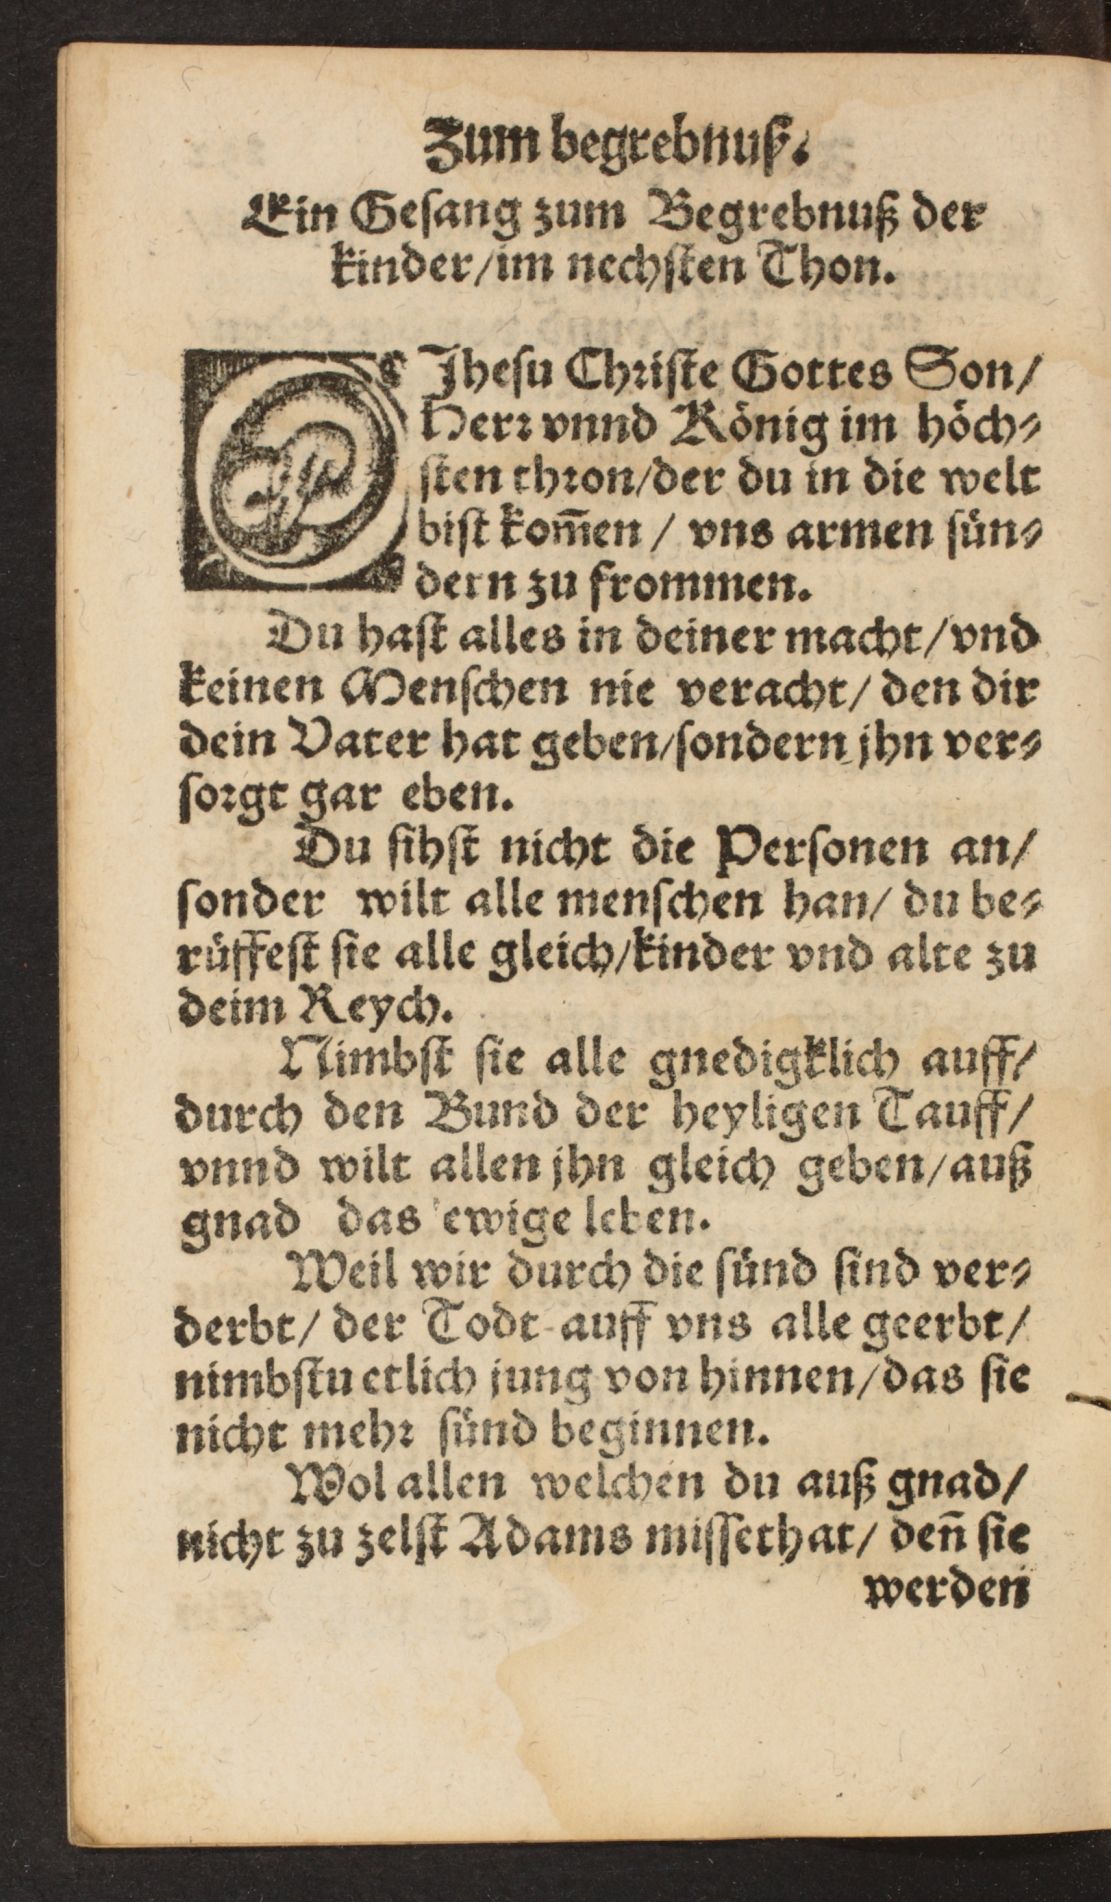 Zum begrebnuß.
Ein Gesang zum Begrebnuß der
kinder/im nechsten Thon.
O Jhesu Christe Gottes Son/
Herr vnnd König im höch⸗
sten thron/der du in die welt
bist kom̃en / vns armen sün⸗
dern zu frommen.
Du hast alles in deiner macht/vnd
keinen Menschen nie veracht/ den dir
dein Vater hat geben/sondern jhn ver⸗
sorgt gar eben.
Du sihst nicht die Personen an/
sonder wilt alle menschen han/ du be⸗
rüffest sie alle gleich/kinder vnd alte zu
deim Reych.
Nimbst sie alle gnedigklich auff/
durch den Bund der heyligen Tauff/
vnnd wilt allen jhn gleich geben/auß
gnad das ewige leben.
Weil wir durch die sünd sind ver⸗
derbt/ der Todt auff vns alle geerbt/
nimbstu etlich jung von hinnen/das sie
nicht mehr sünd beginnen.
Wol allen welchen du auß gnad/
nicht zu zelst Adams missethat/ deñ sie
werden